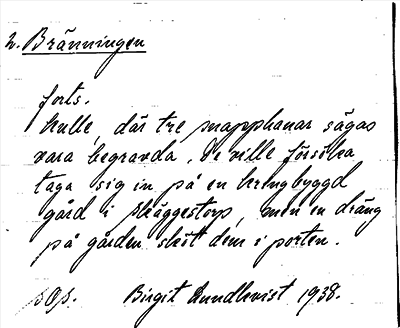 2. Bränningen
forts.
kulle, där tre snapphanar sägas
vara begravda. De ville försöka
taga sig in på en kringbyggd
gård i Skäggestorp, men en dräng
på gården sköt dem i porten.
Birgit Lundkvist 1938.